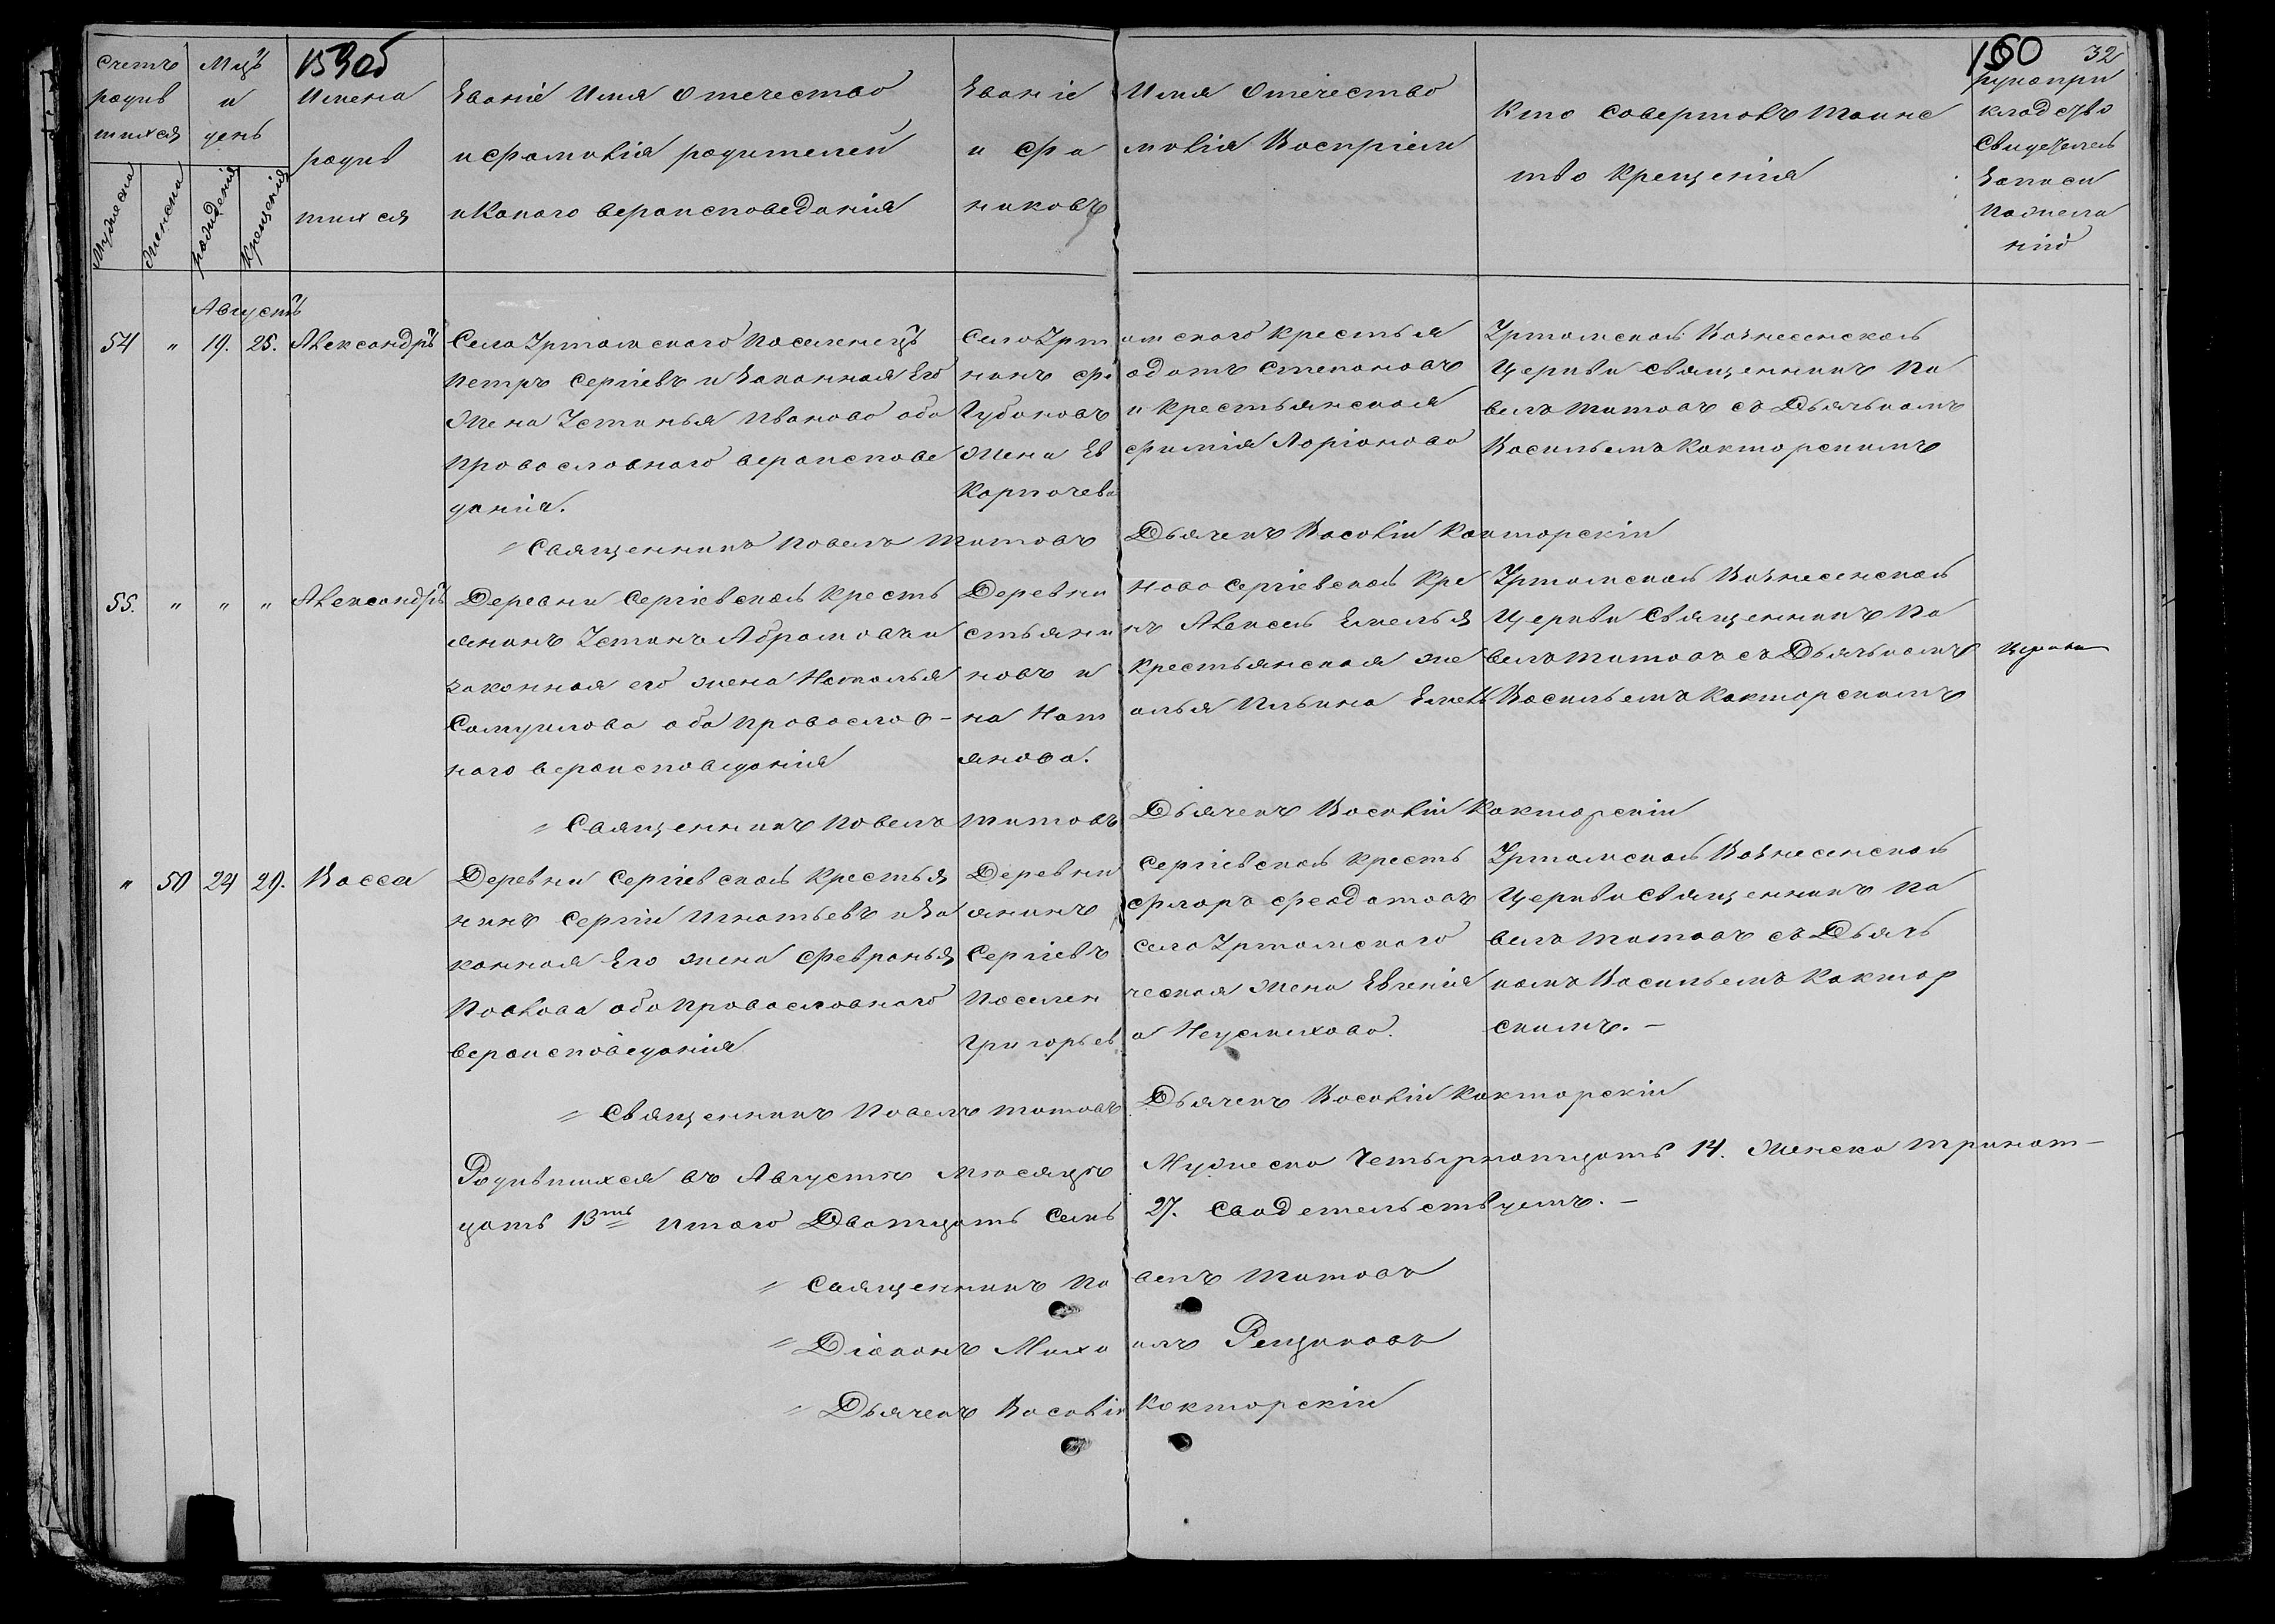 159об
160 32
Счетъ родив шихся
Мужеска
Женска
Мцъ и день
рожденія
крещенія
Имена родив шихся
Званіе Имя Отечество
и фамилія родителей
и Какого вероисповеданія
Званіе Имя Отечество
и фамилія Воспріем
никовъ
Кто Совершалъ Таинс
тво Крещенія
рукопри
кладство
Свидетелей
Записи
по жела
нію
Августъ
54 " 19. 25. Александръ
Села Уртамскаго Поселенецъ
Петръ Сергіевъ и Законная Его
Жена Устинья Иванова оба
Православнаго вероиспове
данія.
Села Уртамскаго Крестья
нинъ Федотъ Степановъ
Губановъ и Крестьянская
жена Евфимія Ларіонова
Карпачева
Уртамской Вознесенской
Церкви Священникъ Па
велъ Титовъ съ Дьячькомъ
Васильемъ Какторскимъ
" Священникъ Павелъ Титовъ Дьячекъ Василій Какторскій
55. " " " Александръ
Деревни Сергіевской Кресть
янинъ Устинъ Абрамовъ и
законная его жена Наталья
Самуилова оба Православ-
наго вероисповеданія
Деревни Ново Сергіевской Кре
стьянинъ Алексей Емелья
новъ и Крестьянская же
на Наталья Ильина Емель
янова.
Уртамской Вознесенской
Церкви Священникъ Па
велъ Титовъ съ Дьячькомъ
Васильемъ Какторскимъ
Церкви
" Священникъ Павелъ Титовъ Дьячекъ Василій Какторскій
" 50 24 29. Васса
Деревни Сергіевской Крестья
нинъ Сергій Игнатьевъ и За
конная Его жена Февронья
Павлова оба Православнаго
вероисповеданія
Деревни Сергіевской Кресть
янинъ Флоръ Феодотовъ
Сергіевъ села Уртамскаго
Поселенческая жена Евгенія
Григорьева Неусмехова.
Уртамской Вознесенской
Церкви Священникъ Па
велъ Титовъ съ Дьячь
комъ Васильемъ Кактор
скимъ. —
" Священникъ Павелъ Титовъ Дьячекъ Василій Какторскій
Родившихся въ Августе месяце Мужеска Четырнатцать 14. Женска Тринат—
цать 13ть Итого Дватцать Семь 27. Свидетельствуемъ. —
" Священникъ Павелъ Титовъ
" Діаконъ Михаилъ Рещиковъ
" Дьячекъ Василій Какторскій